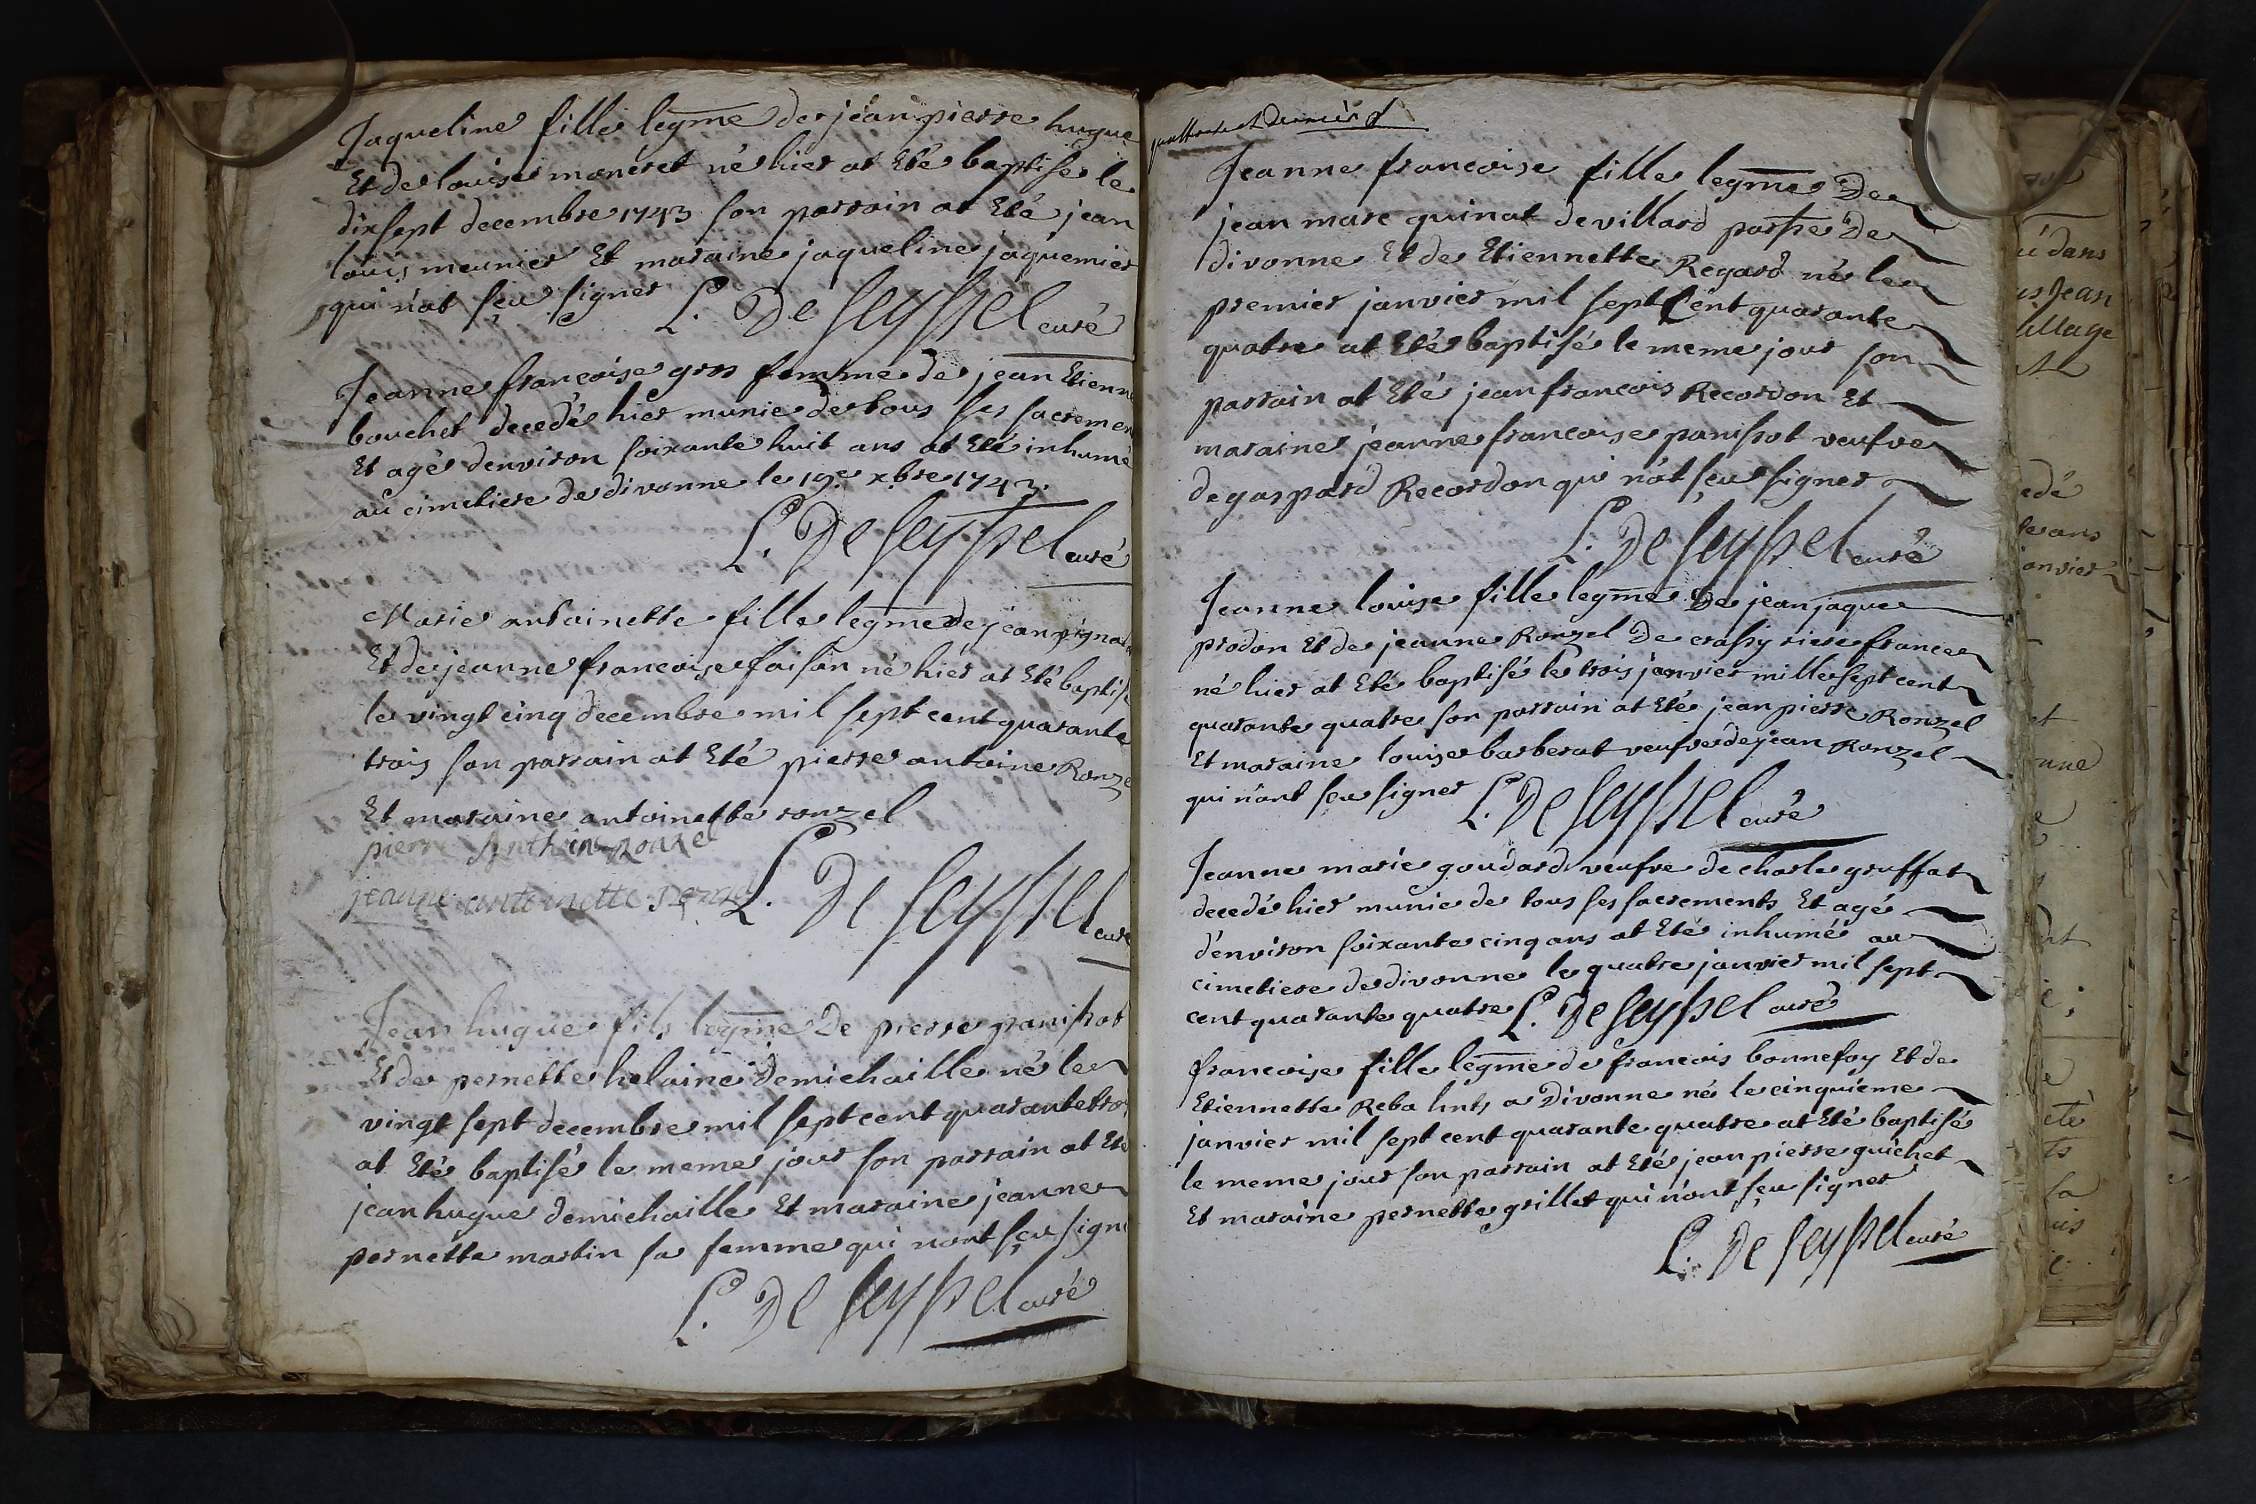 Jaqueline fille legme de jean pierre hugue
Et de louise maneret né hier at Eté baptisé le
dix sept decembre 1743 son parrain at Eté jean
louis meunier Et maraine jaqueline jaquemier
qui n'at sçu signer L. De Seyssel curé
Jeanne françoise gros femme de jean Etienne
bouchet decedé hier munie de tous ses sacremen
Et agé denviron soixante huit ans at Eté inhumé
au cimetiere de divonne le 19e xbre 1743.
L. De Seyssel curé
Marie antoinette fille legme de jean pignat
Et de jeanne françoise faisan né hier at Eté baptisé
le vingt cinq decembre mil sept cent quarante
trois son parrain at Eté pierre antoine Ronze
Et maraine antoinette ronzel
pierre Anthoine Ronzel
jeanne antoinette ronzel L. De Seyssel curé
Jean hugue fils legme De pierre panissot
Et de pernette helaine demichaille né le
vingt sept decembre mil sept cent quarante tro
at Eté baptisé le meme jour son parrain at Eté
jean hugue demichaille Et maraine jeanne
pernette martin sa femme qui n'ont sçu sign
L. De Seyssel curé
Jeanne françoise fille legme De
jean marc quinat de villard parsse De
divonne Et de Etiennette Regard né le
premier janvier mil sept Cent quarante
quatre at Eté baptisé le meme jour son
parrain at Eté jean francois Recordon Et
maraine jeanne francoise panissot veufve
de gaspard Recordon qui n'at sçu signer
L. De Seyssel curé
Jeanne louise fille legme De jean jaque
prodon Et de jeanne Ronzel De crassy riere france
né hier at Eté baptisé le trois janvier mille sept cent
quarante quatre son parrain at Eté jean pierre Ronzel
Et maraine louise barberat veufve de jean Ronzel
qui n'ont sçu signer L. De Seyssel curé
Jeanne marie goudard veufve de charle gruffat
decedé hier munie de tous ses sacrements Et agé
d'environ soixante cinq ans at Eté inhumé au
cimetiere de divonne le quatre janvier mil sept
cent quarante quatre L. De Seyssel curé
francoise fille legme de francois bonnefoy Et de
Etiennette Reba hnts a Divonne né le cinquième
janvier mil sept cent quarante quatre at Eté baptisé
le meme jour son parrain at Eté jean pierre guichet
Et maraine pernette grillet qui n'ont sçu signer
L. De Seyssel curé